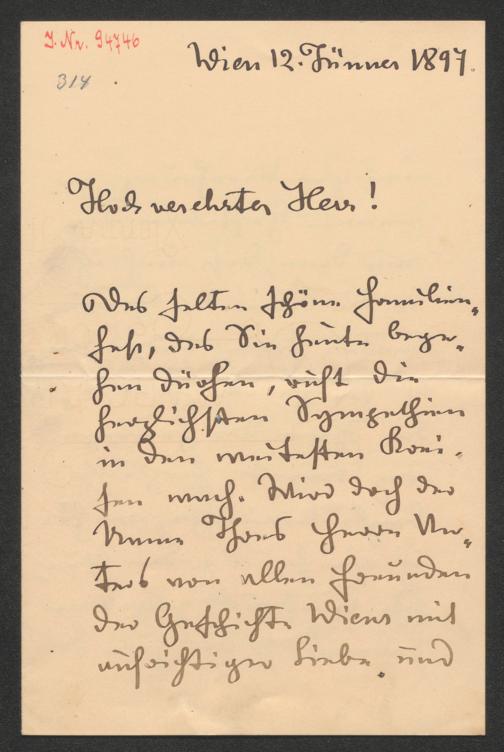 J. Nr. 94746
314
Wien 12. Jänner 1897.
Hochverehrter Herr!
Das selten schöne Familien-
fest, das Sie heute bege-
hen dürfen, ruft die
herzlichsten Sympathien
in den weitesten Krei-
sen wach. Wird doch der
Name Ihres Herrn Va-
ters von allen Freunden
der Geschichte Wiens mit
aufrichtiger Liebe und